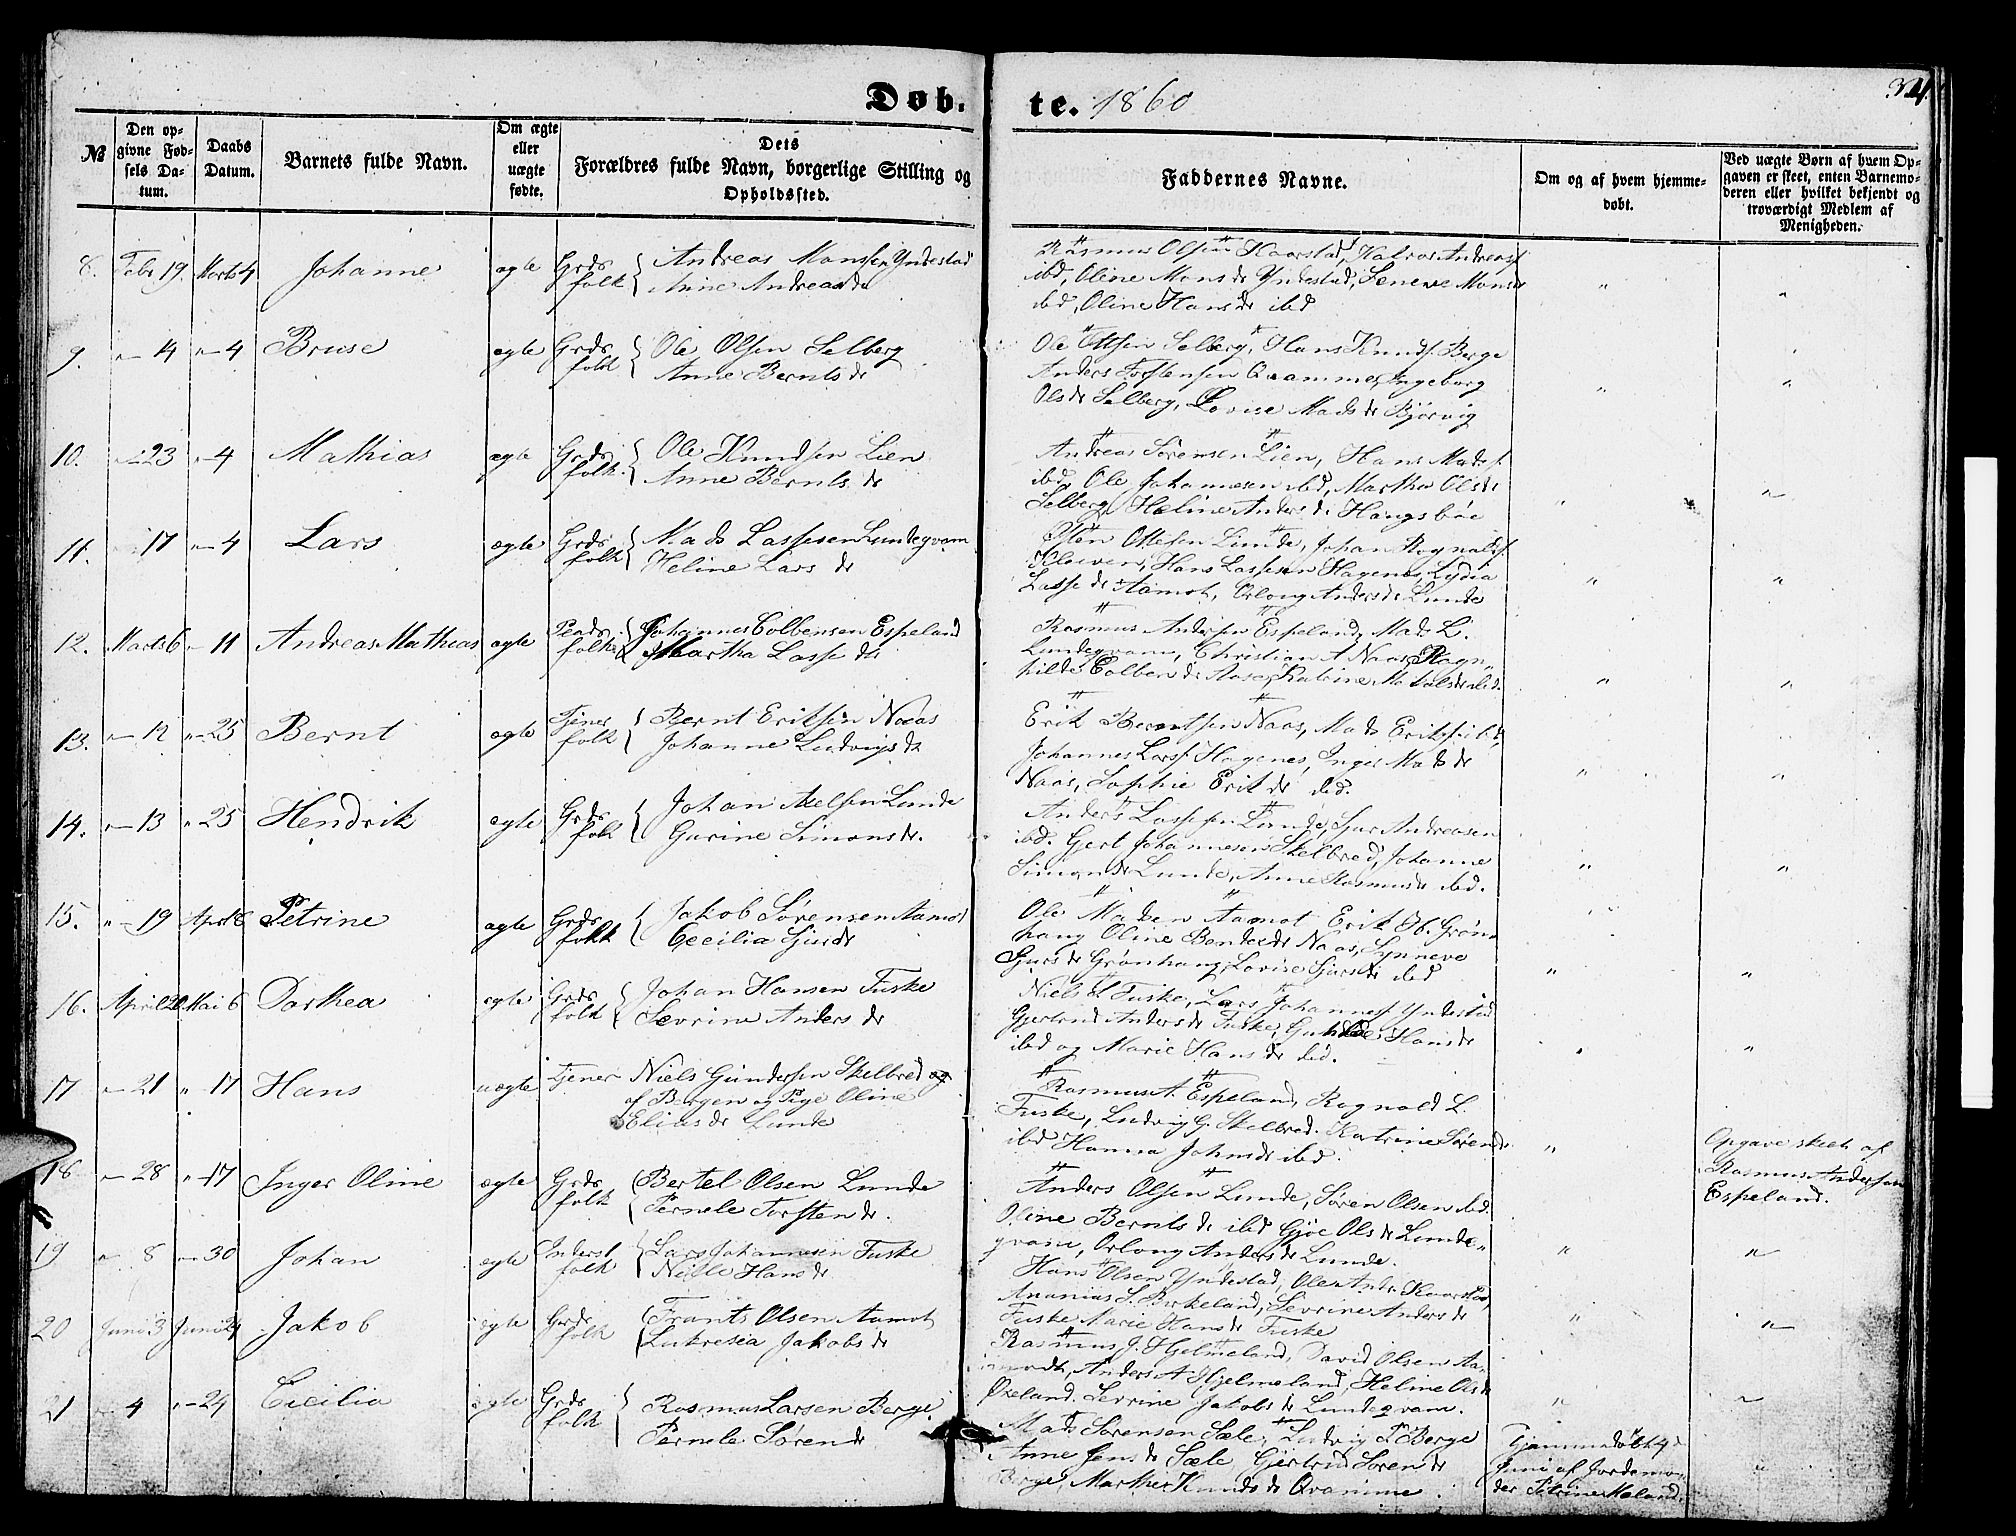 Døb. te. 1860
№
Den op-
givne Fød-
sels Da-
tum.
Daabs
Datum.
Barnets fulde Navn.
Om ægte
eller
uægte
fødte.
Dets
Forældres fulde Navn, borgerlige Stilling og
Opholdssted.
Faddernes Navne.
Om og af hvem hjemme-
døbt.
Ved uægte Børn af hvem Op-
gaven er skeet, enten Barnemo-
deren eller hvilket bekjendt og
troværdigt Medlem af
Menigheden.
8. Febr 19. Marts 4 Johanne ægte Grds folk Andreas Monssen Yndestad
Anne Andreasdr
Rasmus Olsen Haarstad, Andreasf.
ibd, Oline Monsdr Yndestad, Monsdr
ibd, Oline Hansdr ibd
9. " 14 " 4 Bruse ægte Grds folk Ole Olsen Selberg
Anne Berntsdr
Ole Ottesen Selberg, Hans Knudsf. Berge
Anders Torstensen Qvamme, Ingeborg
Olsdr Selberg, Lovise Madsdr Bjørvig
10. " 23 " 4 Mathias ægte Grds folk Ole Knudsen Lien
Anne Berntsdr
Andreas Sørensen Lien, Hans Madsf.
ibd, Ole Johannesen ibd, Martha Olsdr
Selberg, Heline Andersdr Haugsbøe
11. " 17 " 4 Lars ægte Grds folk Mads Lassesen Lundeqvam
Heline Larsdr
Ottesen Lunde, Johan Ragnalsf.
Kløven, Hans Lassesen Hagenes, Lydia
Lassedr Aamot, Andersdr Lunde
12. Marts 6 " 11 Andreas Mathias ægte folk Johannes Colbensen Espeland
Martha Lassedr
Rasmus Andersen Espeland, Mads L.
Lundeqvam, Christian A Naas, Ragn-
hilde Colbendr Aase,
13. " 12 " 25 Bernt ægte Tjener folk Bernt Eriksen Naas
Johanne Ludvigsdr
Erik Berntsen Naas, Mads Eriksen ibd,
Johannes Larsf. Hagenes, Inger Madsdr
Naas, Sophie Erikdr ibd.
14. " 13 " 25 Hendrik ægte Grds folk Johan Axelsen Lunde
Gurine Simonsdr.
Anders Lassesen Lunde, Sjur Andreasen
ibd. Gert Johannesen Skelbred, Johanne
Simonsdr Lunde, Anne Rasmusdr ibd.
15. " 19 April 8 Petrine ægte Grds folk Jakob Sørensen Aamot
Cecilia Sjursdr
Ole Madsen Aamot Erik Grøn-
haug Oline Naas, Synneve
Sjursdr Grønhaug, Lovise Sjursdr ibd
16. April 20 Mai 6 Dorthea ægte Grds folk Johan Hansen Fuske
Sevrine Andersdr
Niels Fuske, Lars Johannesf Yndestad
Gjertrud Andersdr Fuske, Hansdr
ibd og Marie Hansdr ibd.
17 " 21 " 17 Hans uægte Tjener Niels Gundersen Skelbred og
af Bergen og Pige Oline
Eliasdr Lunde
Rasmus A. Espeland, Ragnald L.
Fuske, Ludvig G. Skelbred. Katrine Sørensdr
ibd Hanna Johnsdr ibd.
Opgave skeet af
Rasmus Andersen
Espeland.
18 " 28 " 17 Inger Oline ægte Grds folk Bertel Olsen Lunde
Pernele Torstendr.
Anders Olsen Lunde, Søren Olsen ibd.
Oline Berntsdr ibd Gjøe Olsdr Lunde-
qvam, Andersdr Lunde.
19 " 8 " 30 Johan ægte Inderst folk Lars Johannesen Fuske
Nille Hansdr
Hans Olsen Yndestad, Ole Andr. Kaarstad,
Ananias S. Birkeland, Sevrine Andersdr
Fuske Marie Hansdr Fuske
20 Juni 3 Juni 24 Jakob ægte Grds folk Frants Olsen Aamot
Lukresia Jakobsdr
Rasmus J. Hjelmeland, David Olsen Aa-
modt, Anders A Hjelmeland, Heline Olsdr
Øxeland. Sevrine Jakobsdr Lundeqvam.
21 " 4 " 24 Cecilia ægte Grds folk Rasmus Larsen Berge
Pernele Sørendr
Mads Sørensen Sæle, Ludvig Berge
Anne Jensdr Sæle, Gjertrud Sørendr
Berge, Marthe Knudsdr Qvamme.
Hjemmedøbt 4de
Juni af Jordemo-
der Petrine Meland.